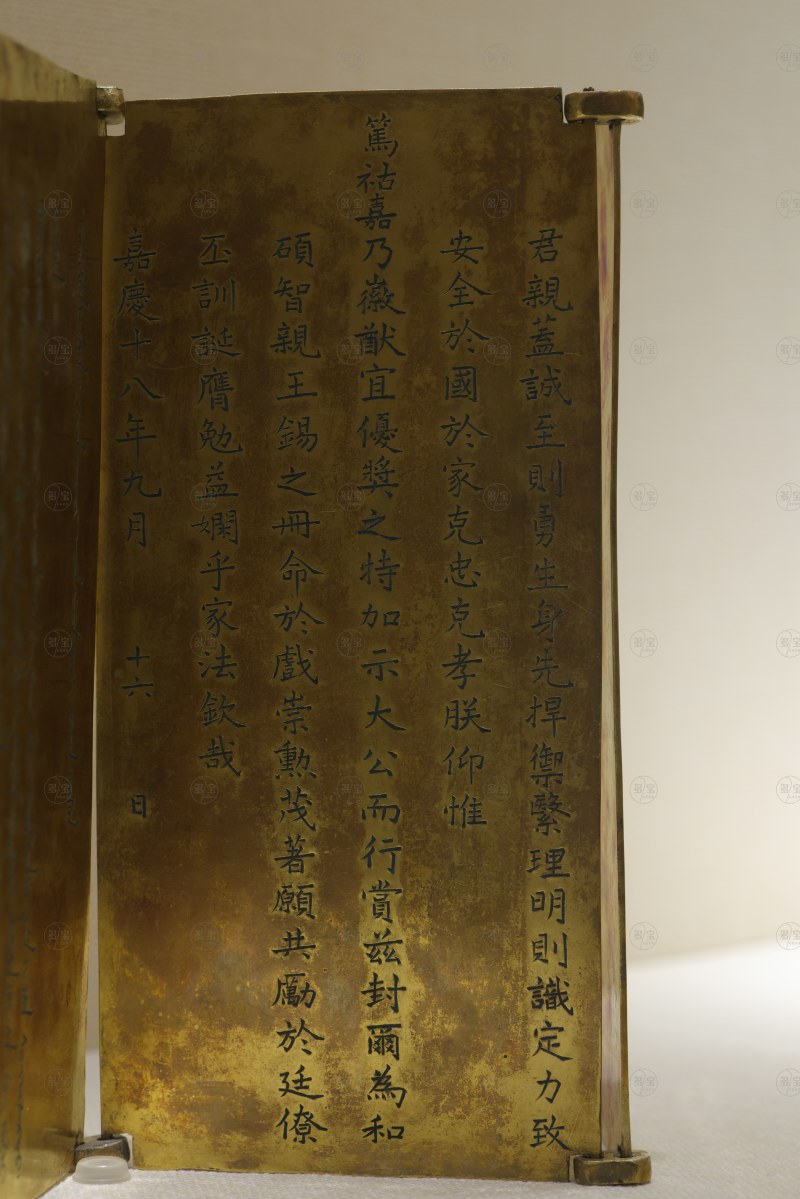 君親蓋誠至則勇生身先捍禦繄理明則識定力致
安全於國於家克忠克孝朕仰惟
篤祜嘉乃徽猷宜優獎之特加示大公而行賞茲封爾為和
碩智親王錫之冊命於戲崇勲茂著願共勵於廷僚
丕訓誕膺勉益嫻乎家法欽哉
嘉慶十八年九月 十六 日